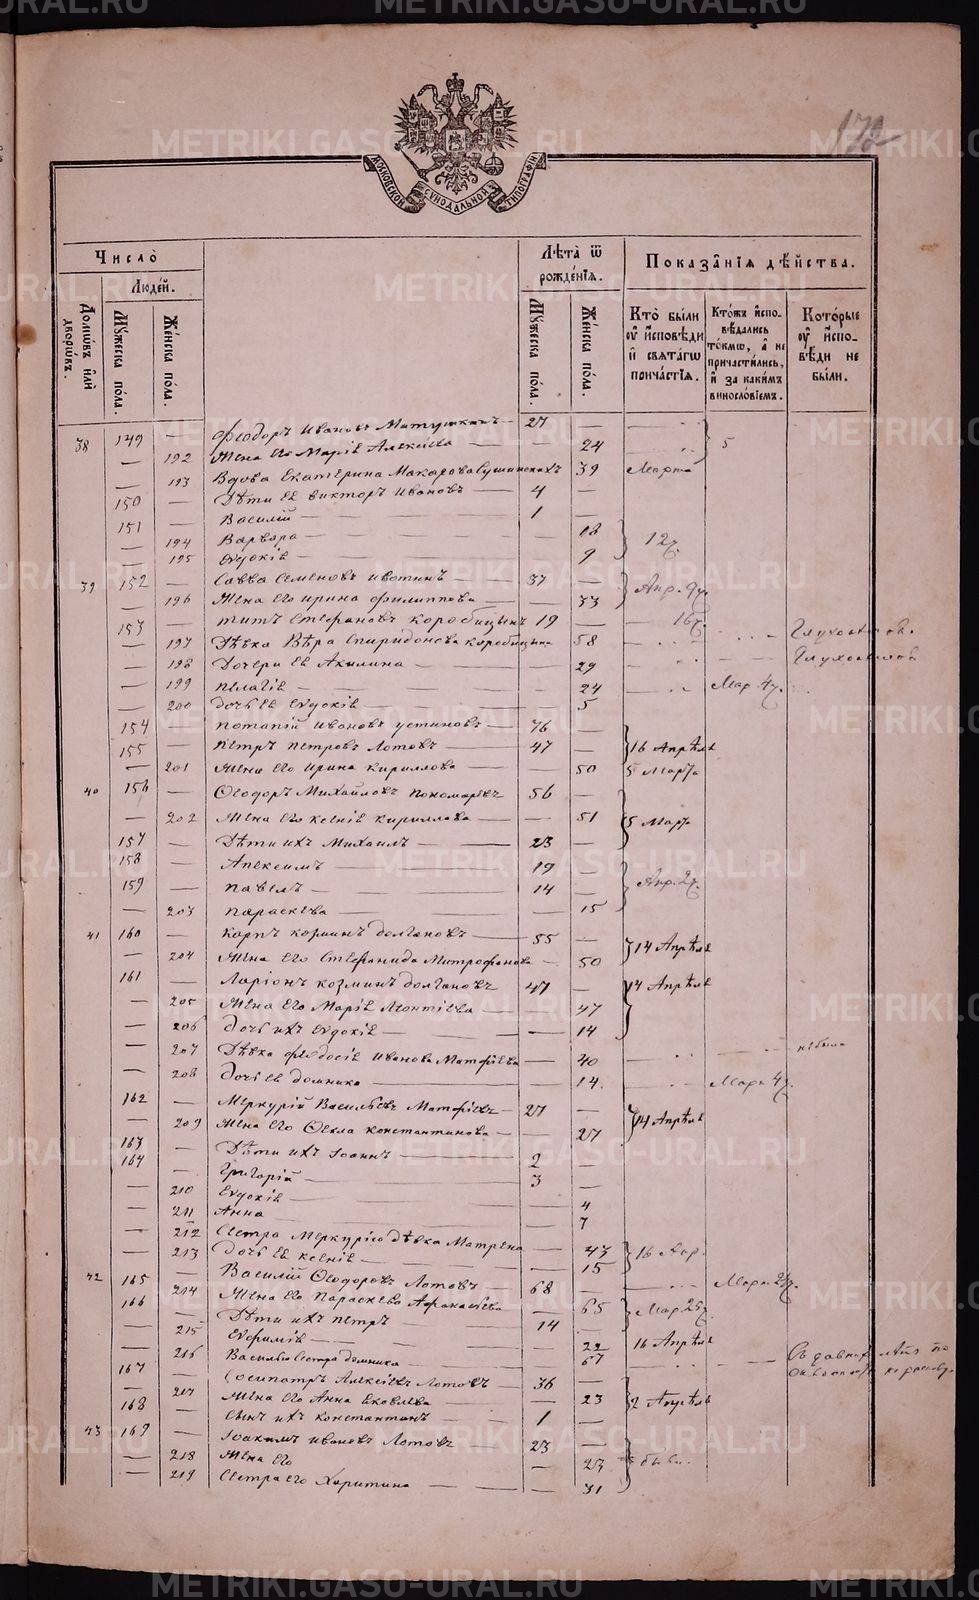 172
МОСКОВСКОЙ СѴНОДАЛЬНОЙ ТИПОГРАФІИ
Число̀
Людей.
Домѡвъ или дворѡвъ.
Мꙋжеска пола.
Женска пола.
Лѣта ѿ рожденїѧ.
Мꙋжеска пола.
Женска пола.
Показанїѧ дѣйства.
Кто были ᲂу҆ исповѣди и свѧтагѡ причастїѧ.
Ктожъ исповѣдались токмѡ, а не причастились, и за какимъ винословїемъ.
Которые ᲂу҆ исповѣди не были.
38 149 — Ѳеодоръ Ивановъ 27 —
— 192 Жена его Марія Алексіева — 24 5
— 193 Вдова Екатерина Макарова 39 Марта
150 — Дѣти ее Викторъ Ивановъ 4 —
151 — Василій 1 —
— 194 Варвара — 18
— 195 Евдокія — 9 12ч.
39 152 — Савва Семеновъ Ивотинъ 37 — Апр. 9ч.
— 196 Жена его Ирина Филиппова — 33
153 — Титъ Стефановъ Коробицынъ 19 16ч.
— 197 Дѣвка Вѣра Спиридонова Коробицына 58
— 198 Дочери ее Акилина — 29
— 199 Пелагія — 24 Мар. 4ч.
— 200 Дочь ее Евдокія — 5
154 — Потапій Ивановъ Устиновъ 76 —
155 — Петръ Петровъ Лотовъ 47 — 16 Апрѣля
— 201 Жена его Ирина Кириллова — 50 5 Марта
40 156 — Ѳеодоръ Михайловъ Пономаревъ 56 —
— 202 Жена его Ксенія Кириллова — 51 5 Марта
157 — Дѣти ихъ Михаилъ 23 —
158 — Алексимъ 19 —
159 — Павелъ 14 — Апр. 2ч.
— 203 Параскева — 15
41 160 — Карпъ Козминъ Долгановъ 55 —
— 204 Жена его Стефанида Митрофанова — 50 14 Апрѣля
161 — Ларіонъ Козминъ Долгановъ 47 — 14 Апрѣля
— 205 Жена его Марія Леонтіева — 47
— 206 Дочь ихъ Евдокія — 14
— 207 Дѣвка Ѳеодосія Иванова Матфіева — 40 не была
— 208 Дочь ее Домника — 14 Мар. 4ч.
162 — Меркурій Васильевъ Матфіевъ 27 —
— 209 Жена его Ѳекла Константинова — 27 14 Апрѣля
163 — Дѣти ихъ Іоаннъ 2 —
164 — Григорій 3 —
— 210 Евдокія — 4
— 211 Анна — 7
— 212 Сестра Меркурію дѣвка Матрена — 43
— 213 Дочь ее Ксенія — 15 16 Апр.
42 165 — Василій Ѳеодоровъ Лотовъ 68 —
— 214 Жена его Параскева Афанасьева — 65 Мар 25ч.
166 — Дѣти ихъ Петръ 14 —
— 215 Евфимія — 22 16 Апрѣля
— 216 Васильо сестра Домника — 67
167 — Алексіевъ Лотовъ 36 —
— 217 Жена его Анна Яковлева — 23 2 Апрѣля
168 — Сынъ ихъ Константинъ 1 —
43 169 — Іоакимъ Ивановъ Лотовъ 23 —
— 218 Жена его — 23
— 219 Сестра его Харитина — 31